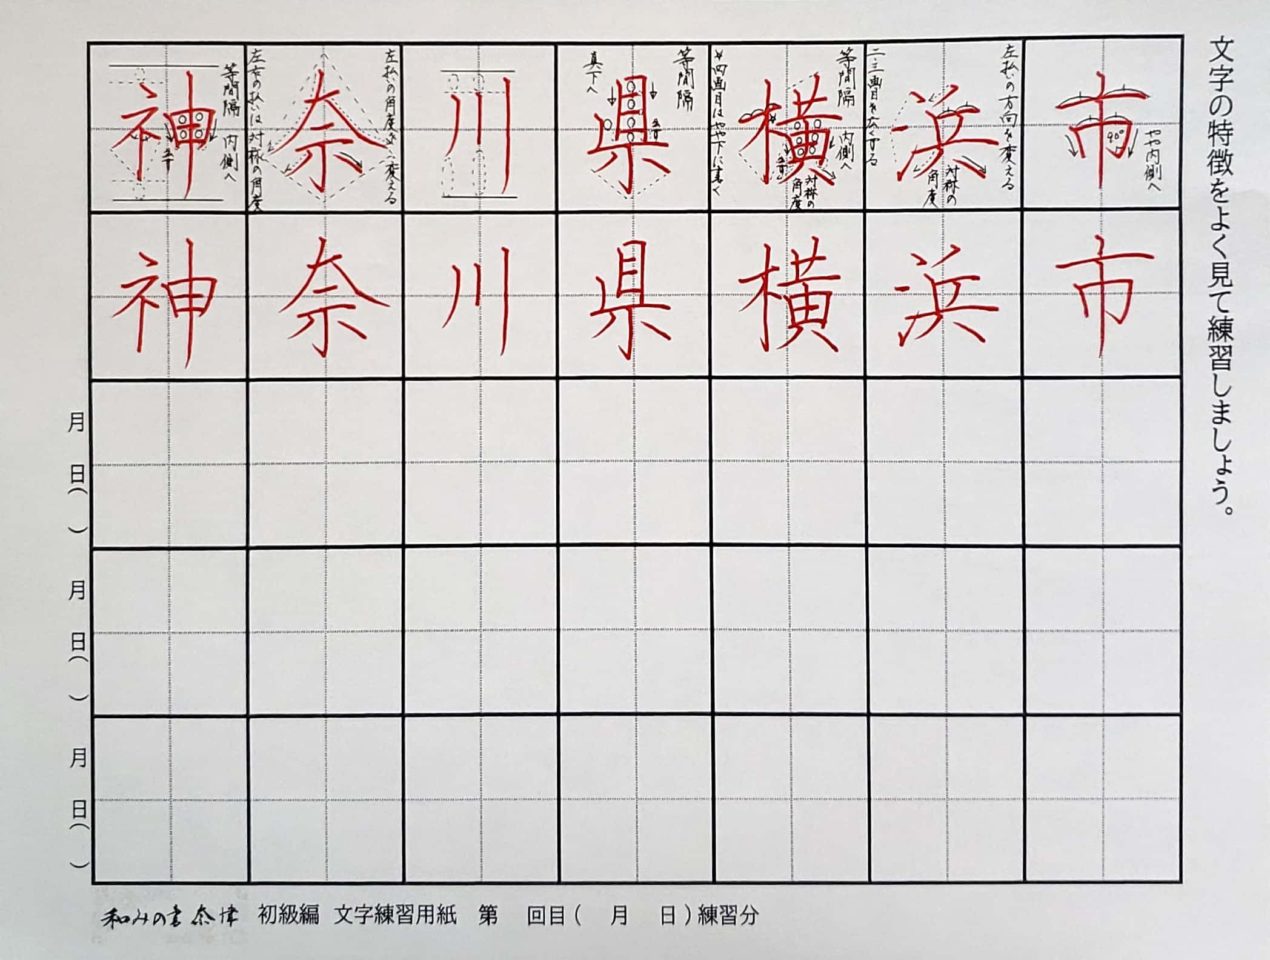 文字の特徴をよく見て練習しましょう。
神 奈 川 県 横 浜 市
等間隔
内側へ
左右の払いは対称の角度
左払いの角度は変える
等間隔
真下へ
等間隔
内側へ
対称の角度
四画目はやや下に書く
左払いの方向を変える
対称の角度
二三画目を広くする
90°
やや内側へ
神 奈 川 県 横 浜 市
月 日( )
月 日( )
月 日( )
和みの書 奈津 初級編 文字練習用紙 第 回目( 月 日)練習分